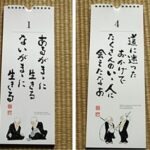 1
あるがまゝに
生きる
ないがまゝに
生きる
4
道に迷った
おかげで
たくさんのいい人に
会えたなあ